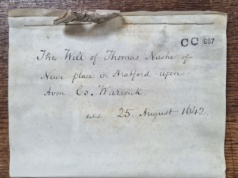 CC 667
The Will of Thomas Nashe of
New place in Stratford upon
Avon Co. Warwick
dated 25 August 1642